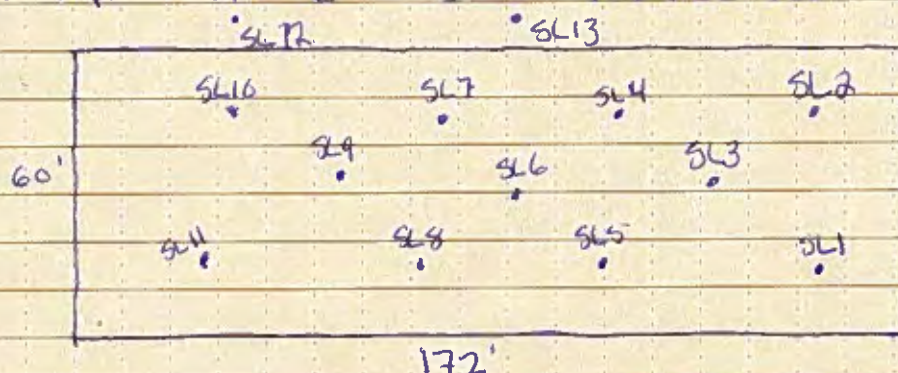 SL12 SL13
SL10 SL7 SL4 SL2
SL9 SL6 SL3
60'
SL11 SL8 SL5 SL1
172'